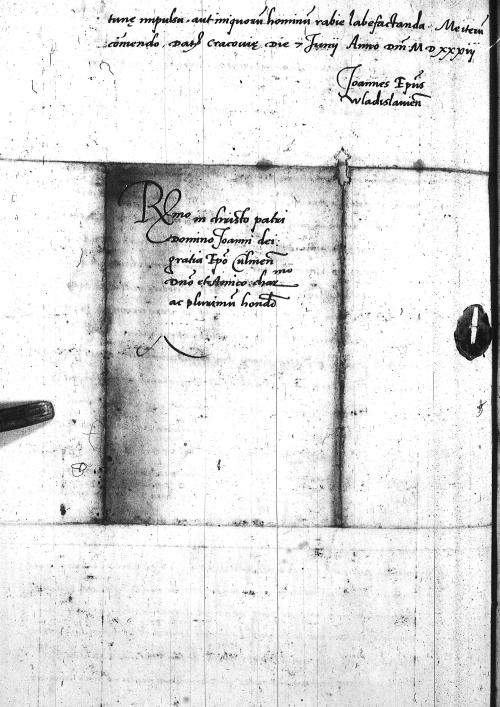 tunę impulsu aut iniquorū hominū rabie labefactanda. Me iterū
cōmendo. Datę Cracovię Die 7 Junij Anno Dm̄ M D xxxvij
Joannes Ep̄us
Wladislavien̄
R̄mo in christo patri
Domino Joanni dei
gratia Ep̄o Culmen̄
Dn̄o et Amico char mo
ac plurimū hondō